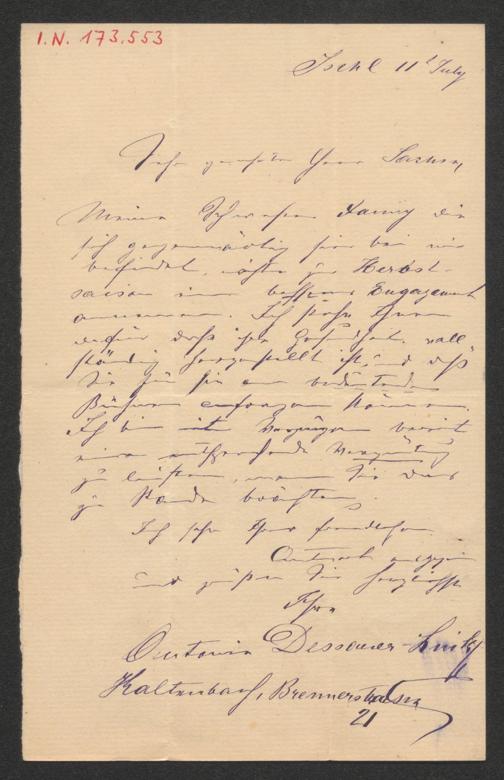 I.N. 173.553
Ischl 11t July
Sehr geehrter Herr
Meine Schwester Fanny die
sich gegenwärtig hier bei mir
befindet, möchte zur Herbst-
saison ein besseres Engagement
annehmen. Ich stehe Ihnen
dafür daß ihre Gesundheit voll
ständig hergestellt ist und daß
Sie für sie an bedeutenden
Bühnen
Ich bin mit Vergnügen bereit
eine entsprechende Vergütung
zu leisten, wenn Sie das
zu Stande brächten.
Ich sehe Ihrer freundlichen
Antwort entgegen
und grüße Sie herzlichst
Ihre
Antonia Dessauer-
Kaltenbach, Brennerstrasse
21